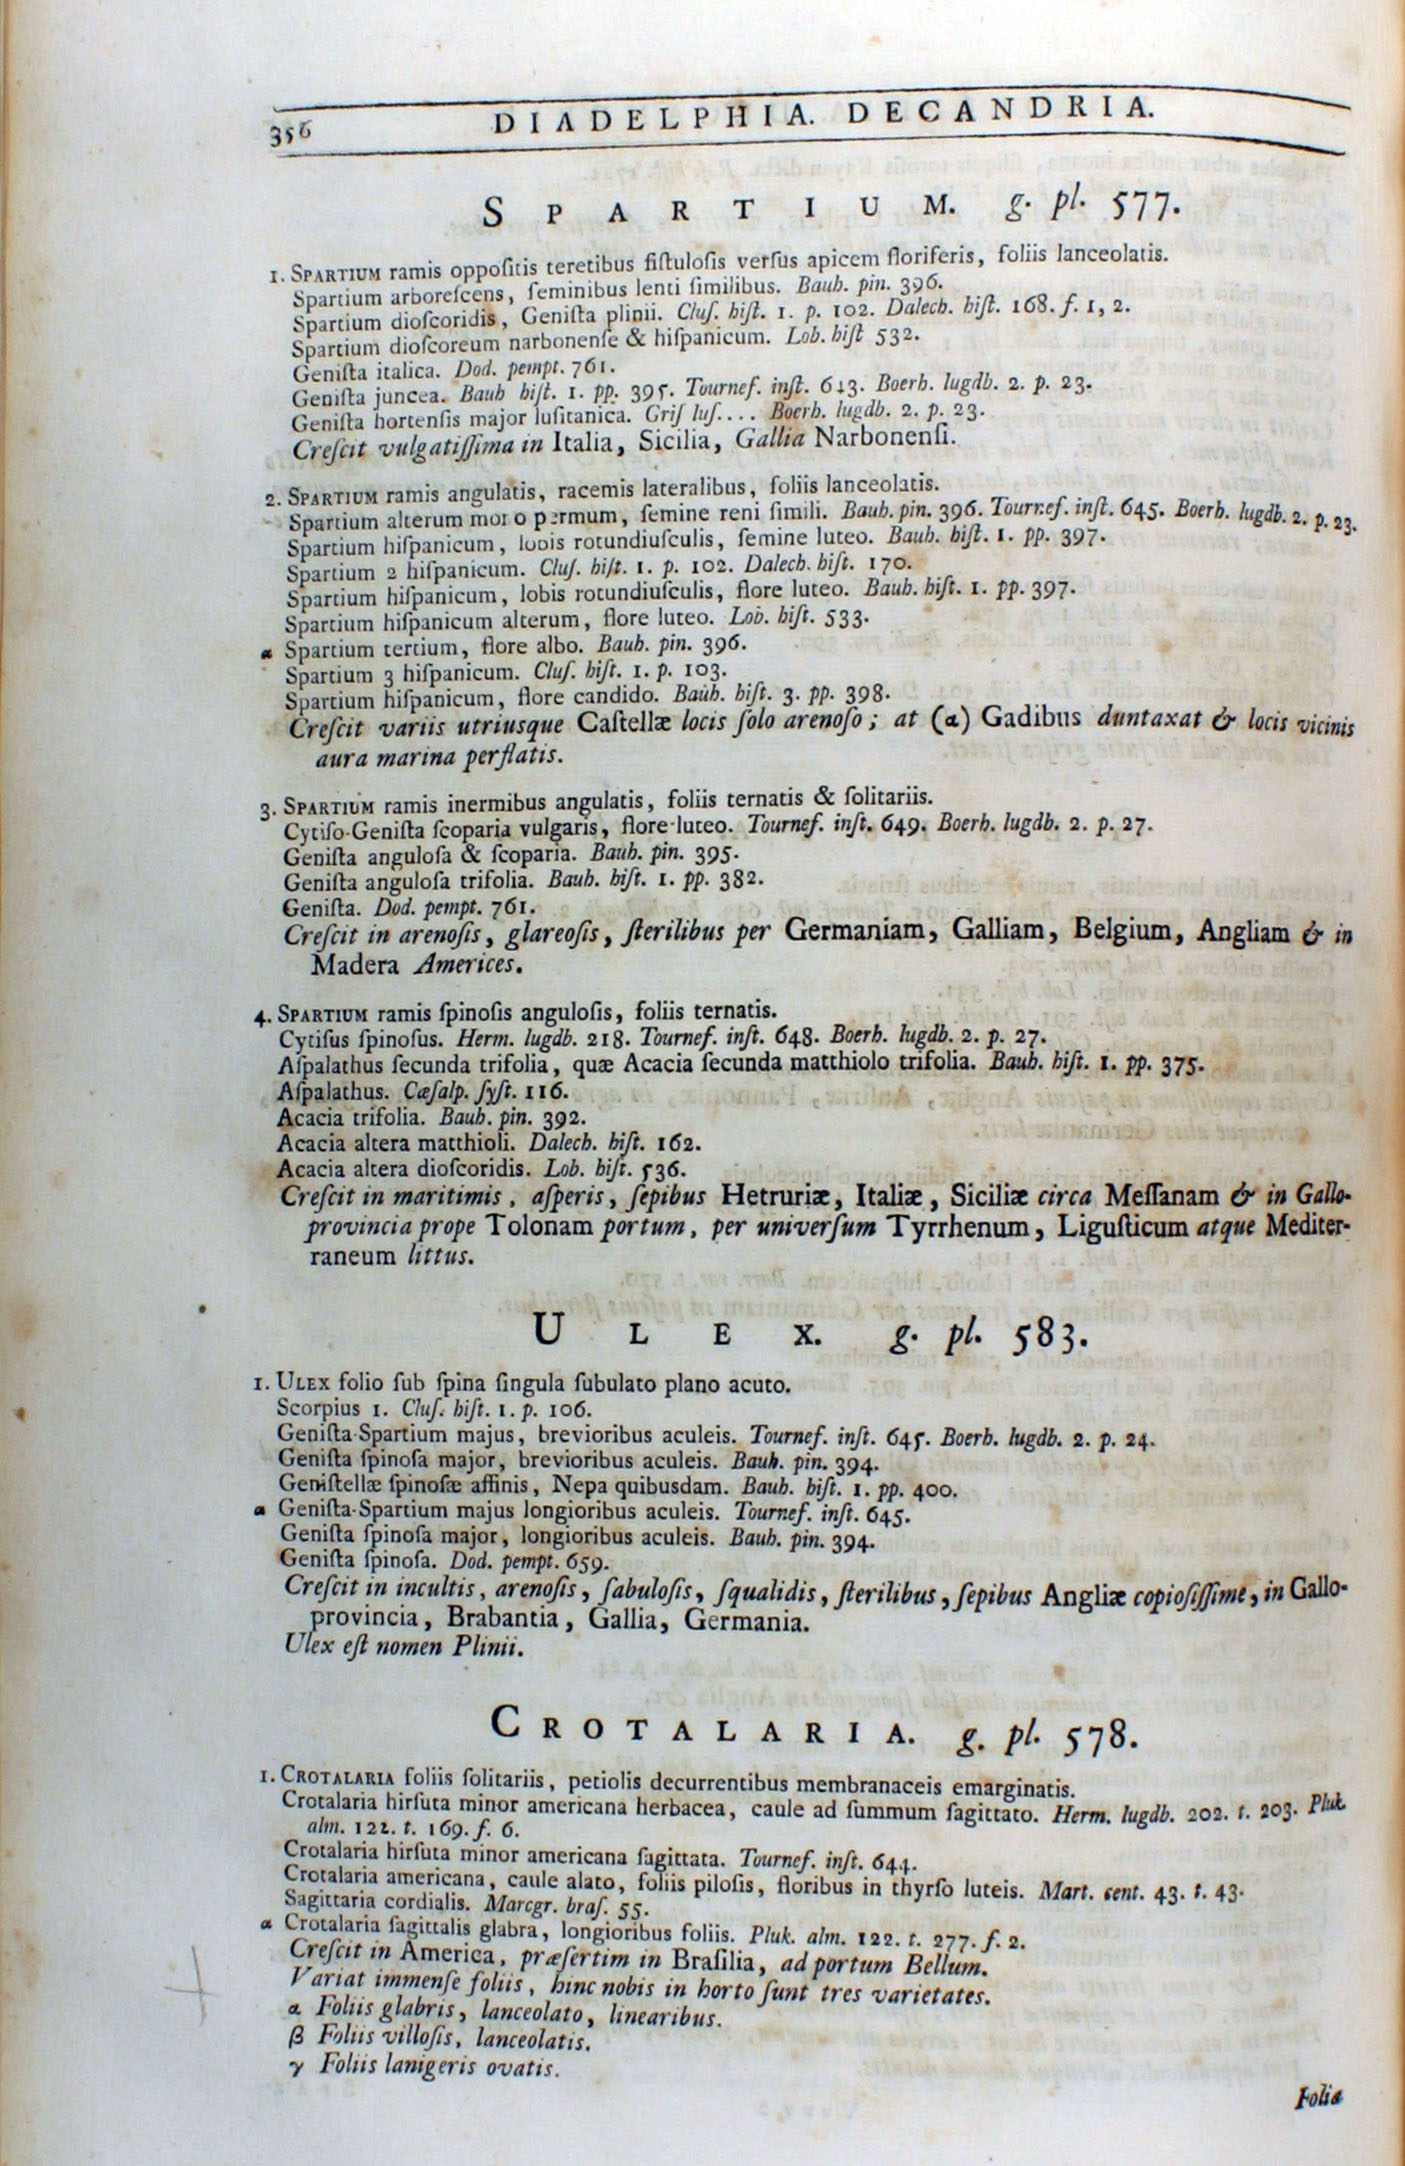 356 DIADELPHIA. DECANDRIA.
SPARTIUM. g. pl. 577.
1. SPARTIUM ramis oppoſitis teretibus fiſtuloſis verſus apicem floriferis, foliis lanceolatis.
Spartium arboreſcens, ſeminibus lenti ſimilibus. Bauh. pin. 396.
Spartium dioſcoridis, Geniſta plinii. Cluſ. hiſt. 1. p. 102. Dalech. hiſt. 168. f. 1, 2.
Spartium dioſcoreum narbonenſe & hiſpanicum. Lob. hiſt 532.
Geniſta italica. Dod. pempt. 761.
Geniſta juncea. Bauh hiſt. 1. pp. 395. Tournef. inſt. 643. Boerh. lugdb. 2. p. 23.
Geniſta hortenſis major luſitanica. Griſ luſ.... Boerh. lugdb. 2. p. 23.
Creſcit vulgatiſſima in Italia, Sicilia, Gallia Narbonenſi.
2. SPARTIUM ramis angulatis, racemis lateralibus, foliis lanceolatis.
Spartium alterum ſemine reni ſimili. Bauh. pin. 396. Tournef. inſt. 645. Boerh. lugdb. 2. p. 23.
Spartium hiſpanicum, lobis rotundiuſculis, ſemine luteo. Bauh. hiſt. 1. pp. 397.
Spartium 2 hiſpanicum. Cluſ. hiſt. 1. p. 102. Dalech. hiſt. 170.
Spartium hiſpanicum, lobis rotundiuſculis, flore luteo. Bauh. hiſt. 1. pp. 397.
Spartium hiſpanicum alterum, flore luteo. Lob. hiſt. 533.
α Spartium tertium, flore albo. Bauh. pin. 396.
Spartium 3 hiſpanicum. Cluſ. hiſt. 1. p. 103.
Spartium hiſpanicum, flore candido. Bauh. hiſt. 3. pp. 398.
Creſcit variis utriusque Caſtellæ locis ſolo arenoſo; at (α) Gadibus duntaxat & locis vicinis
aura marina perflatis.
3. SPARTIUM ramis inermibus angulatis, foliis ternatis & ſolitariis.
Cytiſo-Geniſta ſcoparia vulgaris, flore luteo. Tournef. inſt. 649. Boerh. lugdb. 2. p. 27.
Geniſta anguloſa & ſcoparia. Bauh. pin. 395.
Geniſta anguloſa trifolia. Bauh. hiſt. 1. pp. 382.
Geniſta. Dod. pempt. 761.
Creſcit in arenoſis, glareoſis, ſterilibus per Germaniam, Galliam, Belgium, Angliam & in
Madera Americes.
4. SPARTIUM ramis ſpinoſis anguloſis, foliis ternatis.
Cytiſus ſpinoſus. Herm. lugdb. 218. Tournef. inſt. 648. Boerh. lugdb. 2. p. 27.
Aſpalathus ſecunda trifolia, quæ Acacia ſecunda matthiolo trifolia. Bauh. hiſt. 1. pp. 375.
Aſpalathus. Cæſalp. ſyſt. 116.
Acacia trifolia. Bauh. pin. 392.
Acacia altera matthioli. Dalech. hiſt. 162.
Acacia altera dioſcoridis. Lob. hiſt. 536.
Creſcit in maritimis, aſperis, ſepibus Hetruriæ, Italiæ, Siciliæ circa Meſſanam & in Gallo-
provincia prope Tolonam portum, per univerſum Tyrrhenum, Liguſticum atque Mediter-
raneum littus.
ULEX. g. pl. 583.
1. ULEX folio ſub ſpina ſingula ſubulato plano acuto.
Scorpius 1. Cluſ. hiſt. 1. p. 106.
Geniſta-Spartium majus, brevioribus aculeis. Tournef. inſt. 645. Boerh. lugdb. 2. p. 24.
Geniſta ſpinoſa major, brevioribus aculeis. Bauh. pin. 394.
Geniſtellæ ſpinoſæ affinis, Nepa quibusdam. Bauh. hiſt. 1. pp. 400.
α Geniſta-Spartium majus longioribus aculeis. Tournef. inſt. 645.
Geniſta ſpinoſa major, longioribus aculeis. Bauh. pin. 394.
Geniſta ſpinoſa. Dod. pempt. 659.
Creſcit in incultis, arenoſis, ſabuloſis, ſqualidis, ſterilibus, ſepibus Angliæ copioſiſſime, in Gallo-
provincia, Brabantia, Gallia, Germania.
Ulex eſt nomen Plinii.
CROTALARIA. g. pl. 578.
1. CROTALARIA foliis ſolitariis, petiolis decurrentibus membranaceis emarginatis.
Crotalaria hirſuta minor americana herbacea, caule ad ſummum ſagittato. Herm. lugdb. 202. t. 203. Pluk
alm. 122. t. 169. f. 6.
Crotalaria hirſuta minor americana ſagittata. Tournef. inſt. 644.
Crotalaria americana, caule alato, foliis piloſis, floribus in thyrſo luteis. Mart. cent. 43. t. 43.
Sagittaria cordialis. Marcgr. braſ. 55.
α Crotalaria ſagittalis glabra, longioribus foliis. Pluk. alm. 122. t. 277. f. 2.
Creſcit in America, præſertim in Braſilia, ad portum Bellum.
Variat immenſe foliis, hinc nobis in horto ſunt tres varietates.
α Foliis glabris, lanceolato, linearibus.
β Foliis villoſis, lanceolatis.
γ Foliis lanigeris ovatis.
Folia